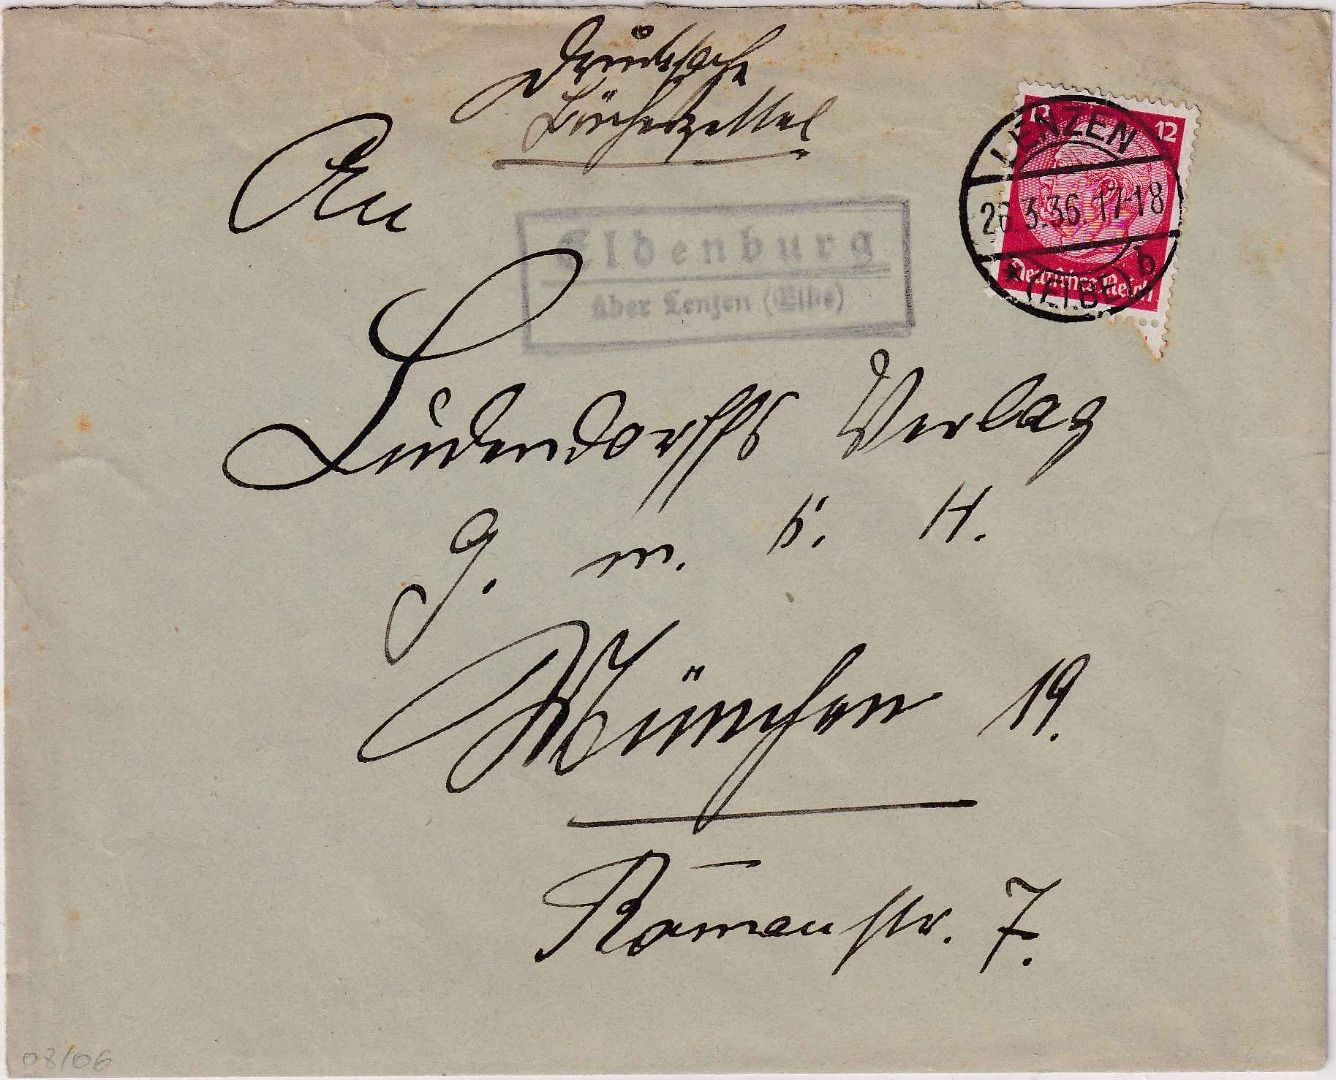 Drucksache
Bücherzettel
An
Eldenburg
über Lenzen (Elbe)
12 12
LENZEN
26.3.36.17-18
* (ELBE) b
Deutsches Reich
Ludendorffs Verlag
G. m. b. H.
München 19.
Romanstr. 7.
08/06